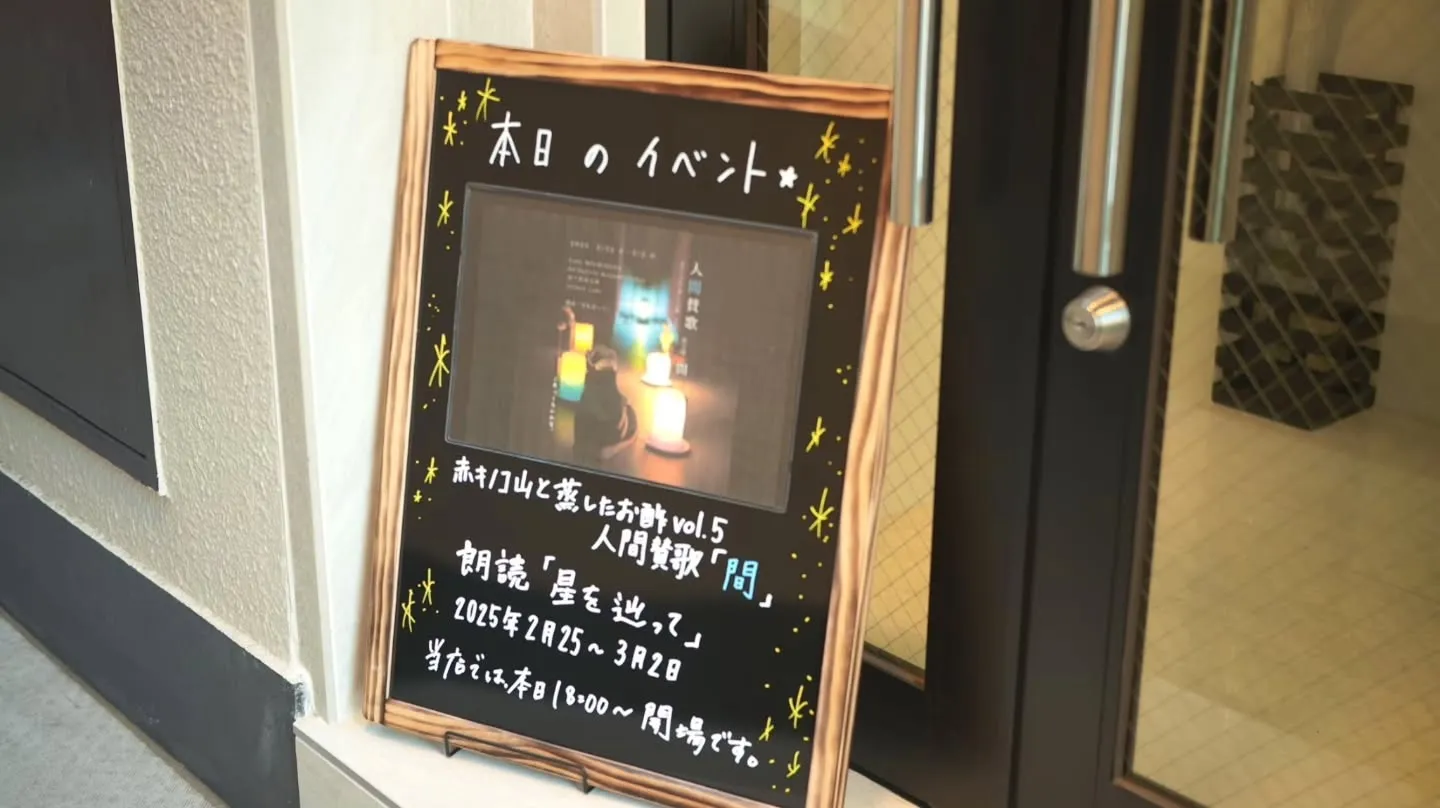 本日のイベント★
人間賛歌
間
赤キノコ山と蒸したお酢vol.5
人間賛歌「間」
朗読「星を辿って」
2025年2月25~3月2日
当店では、本日18:00~開場です。